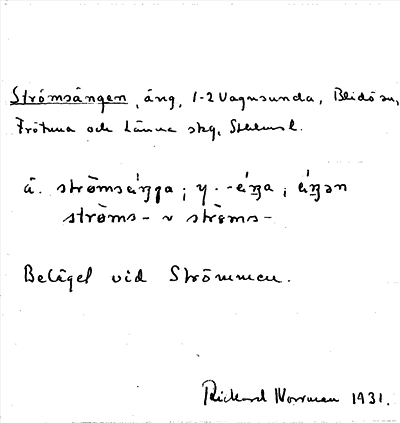 Strömsängen, äng, 1-2 Vagnsunda, Blidö sn,
Frötuna och Länna skg, Sthlms l.
ä. strömsäŋŋa; y. -äŋŋa; äŋŋən
ströms- v strøms-
Beläget vid Strömmen.
Rickard Norrman 1931.